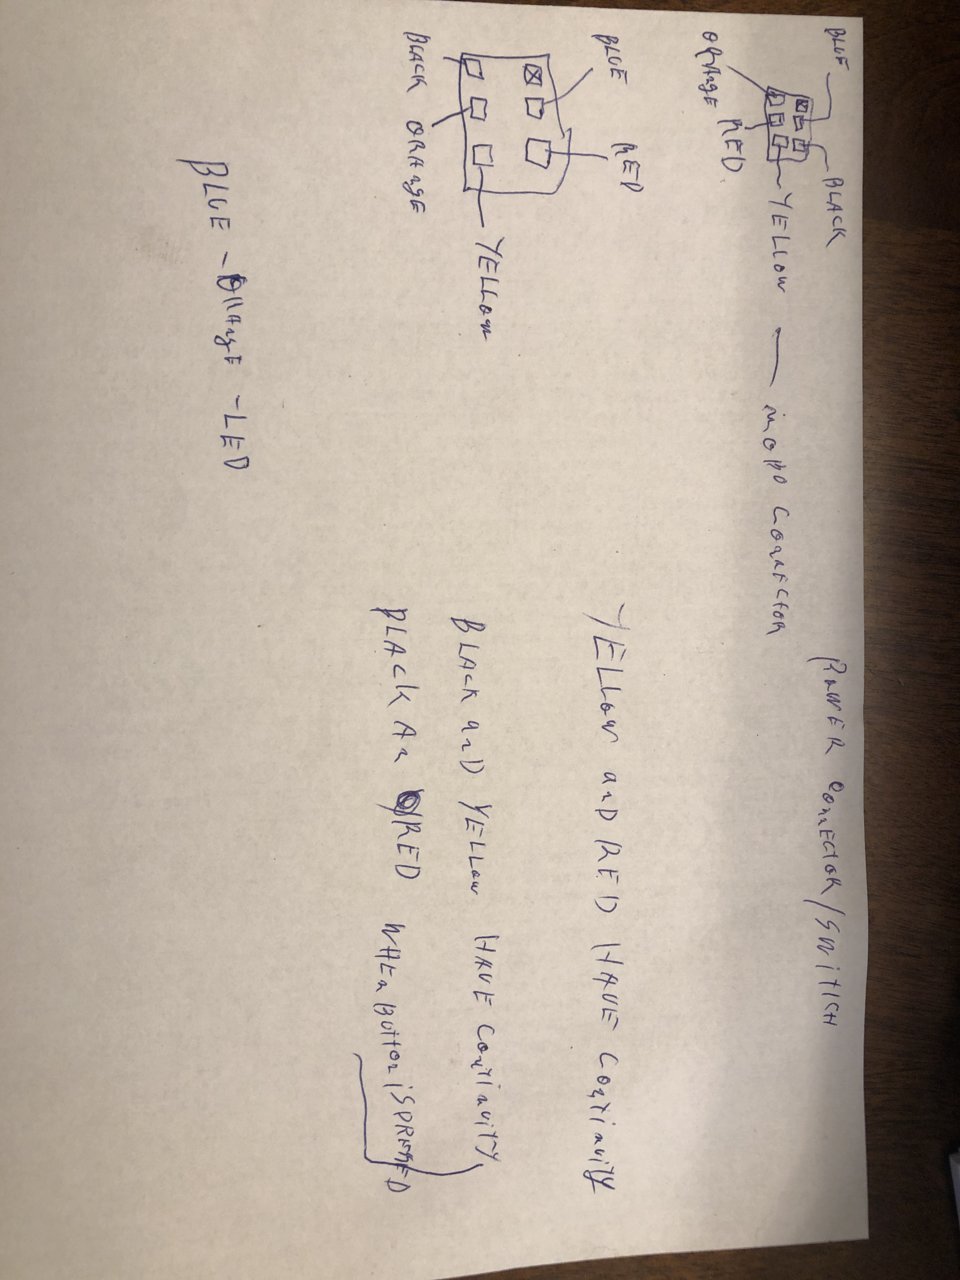 POWER CONNECTOR/SWITICH
BLUE
BLACK
YELLOW — MOBO CONNECTOR
ORANGE RED
BLUE RED
YELLOW AND RED HAVE CONTINUITY
YELLOW
BLACK AND YELLOW HAVE CONTINUITY
BLACK ORANGE
BLACK AN RED WHEN BUTTON IS PRESSED
BLUE - ORANGE - LED